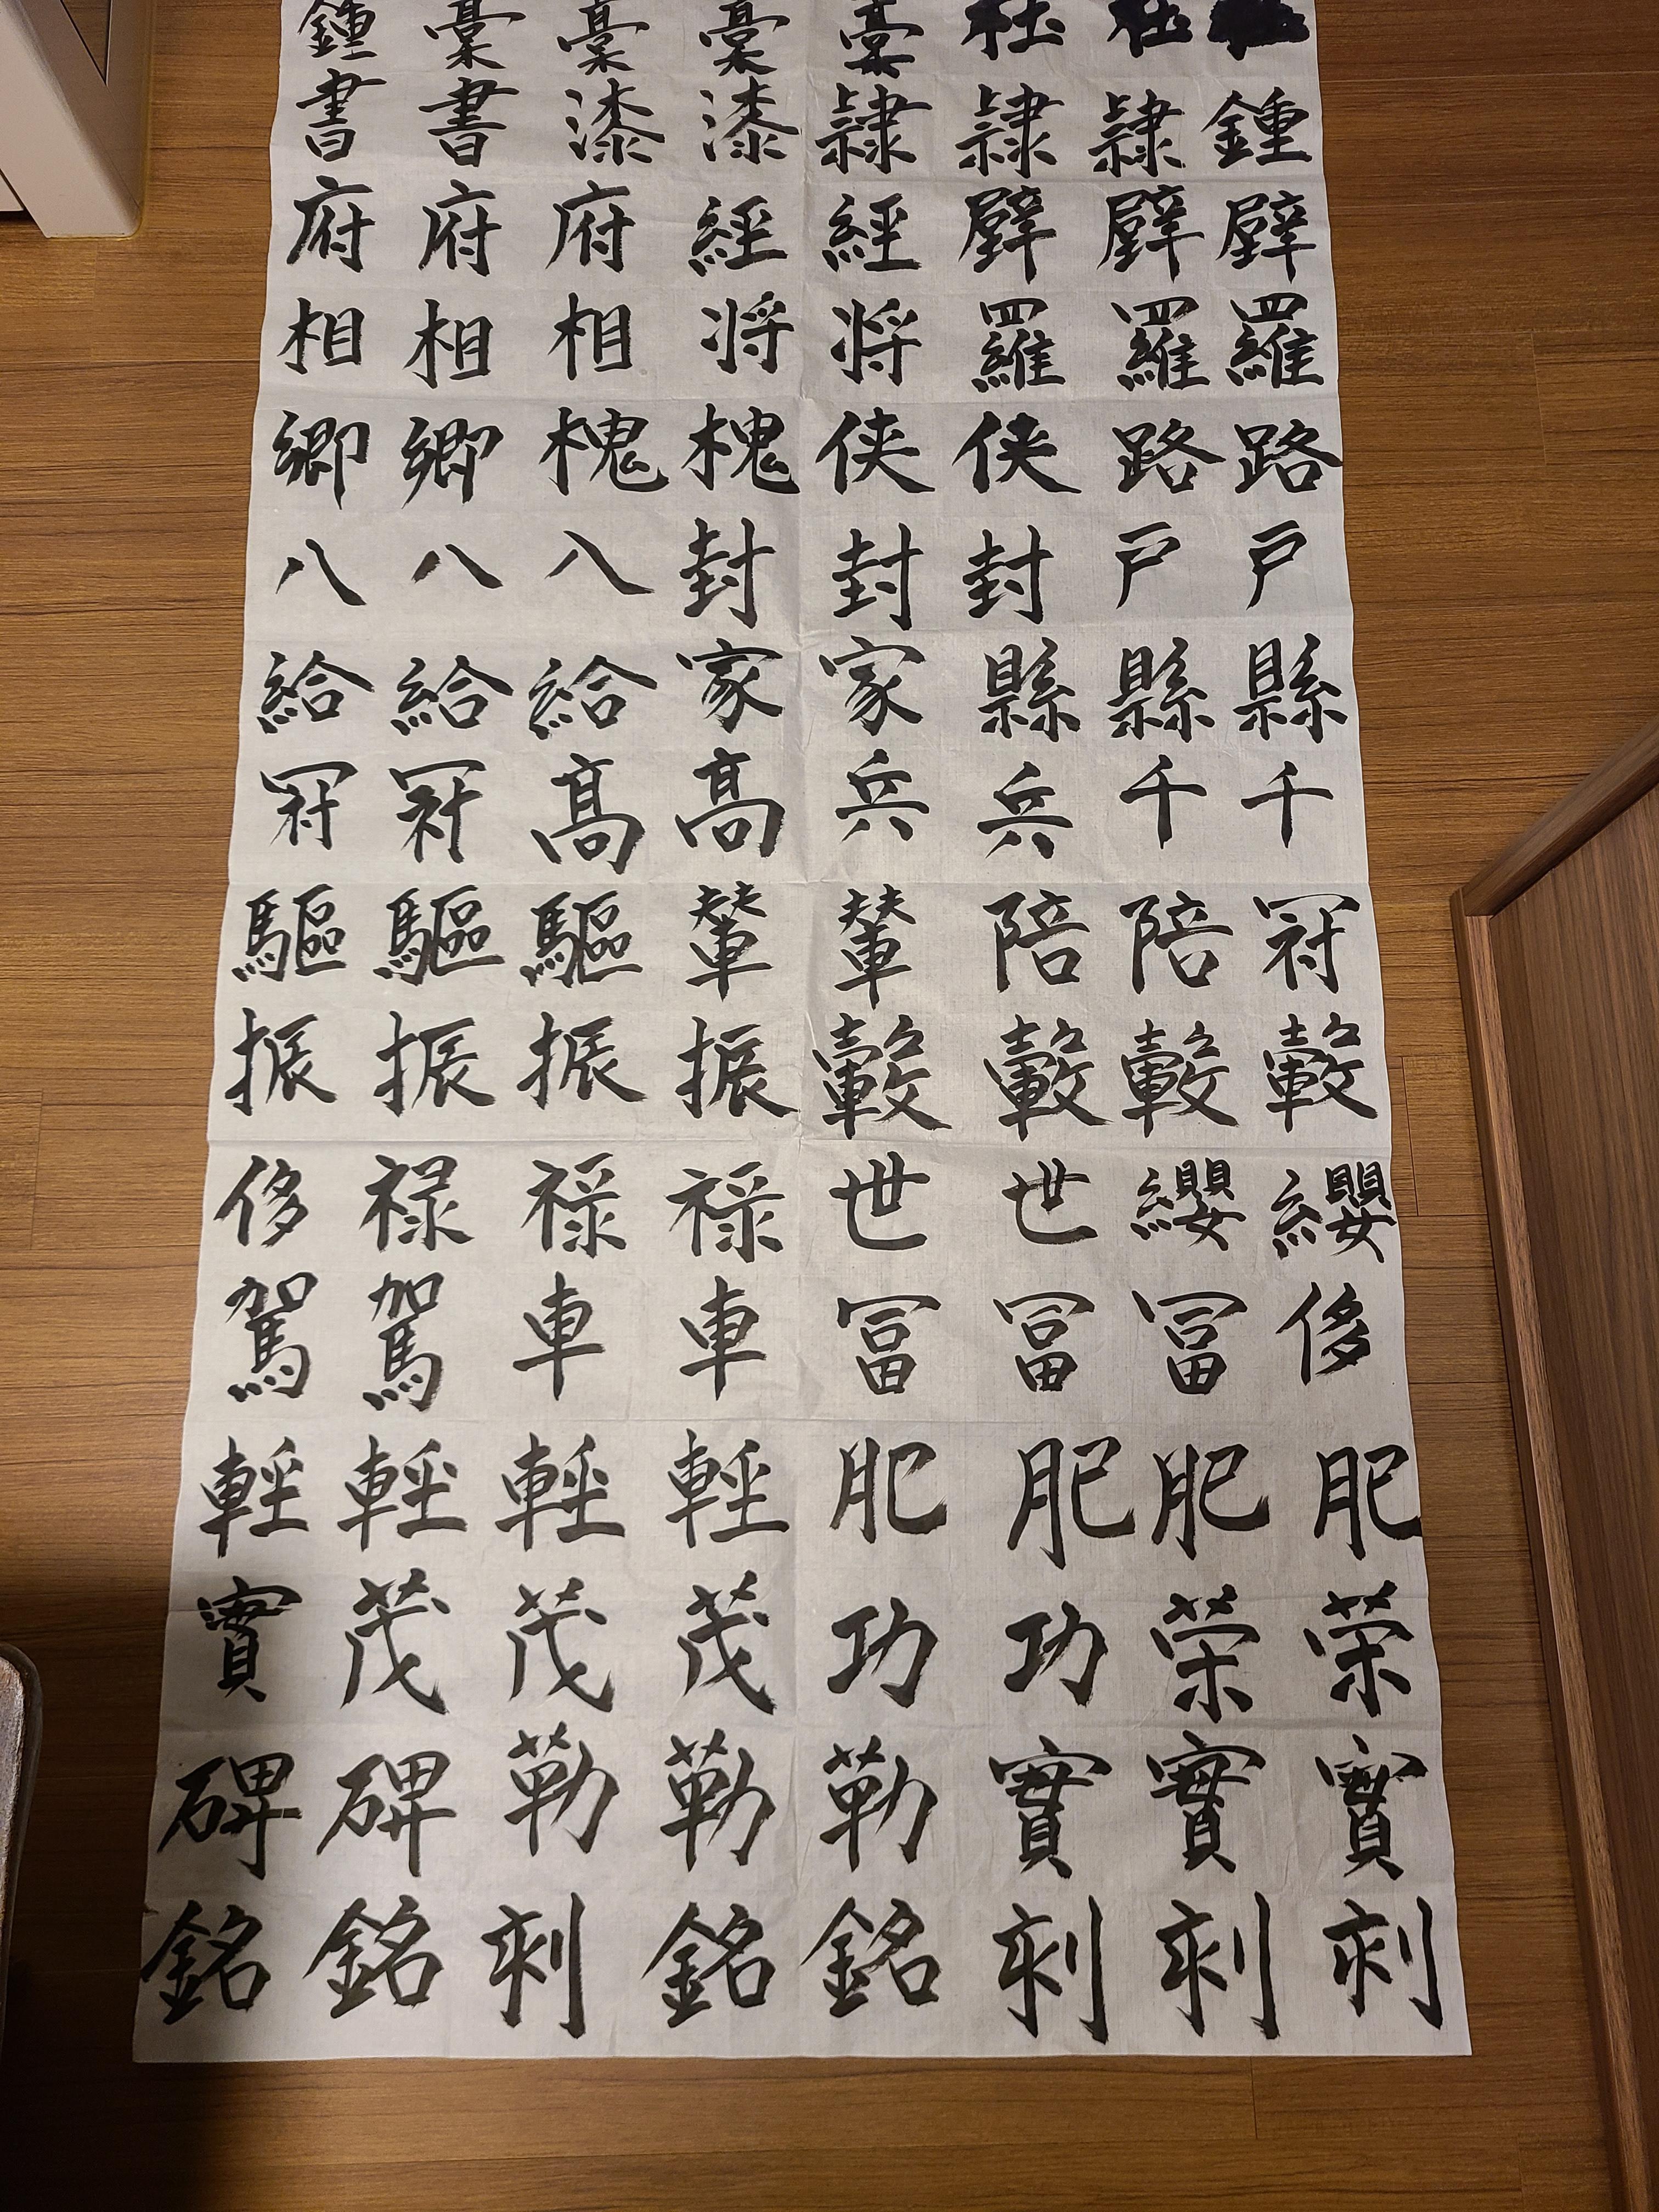 杜杜稾稾稾稾鍾
鍾隸隸隸漆漆書書
壁壁壁經經府府府
羅羅羅将将相相相
路路侠侠槐槐卿卿
戸戸封封封八八八
縣縣縣家家給給給
千千兵兵高高冠冠
冠陪陪輦輦驅驅驅
轂轂轂轂振振振振
纓纓世世禄禄禄侈
侈冨冨冨車車駕駕
肥肥肥肥輕輕輕輕
策策功功茂茂茂實
實實實勒勒勒碑碑
刻刻刻銘銘刻銘銘